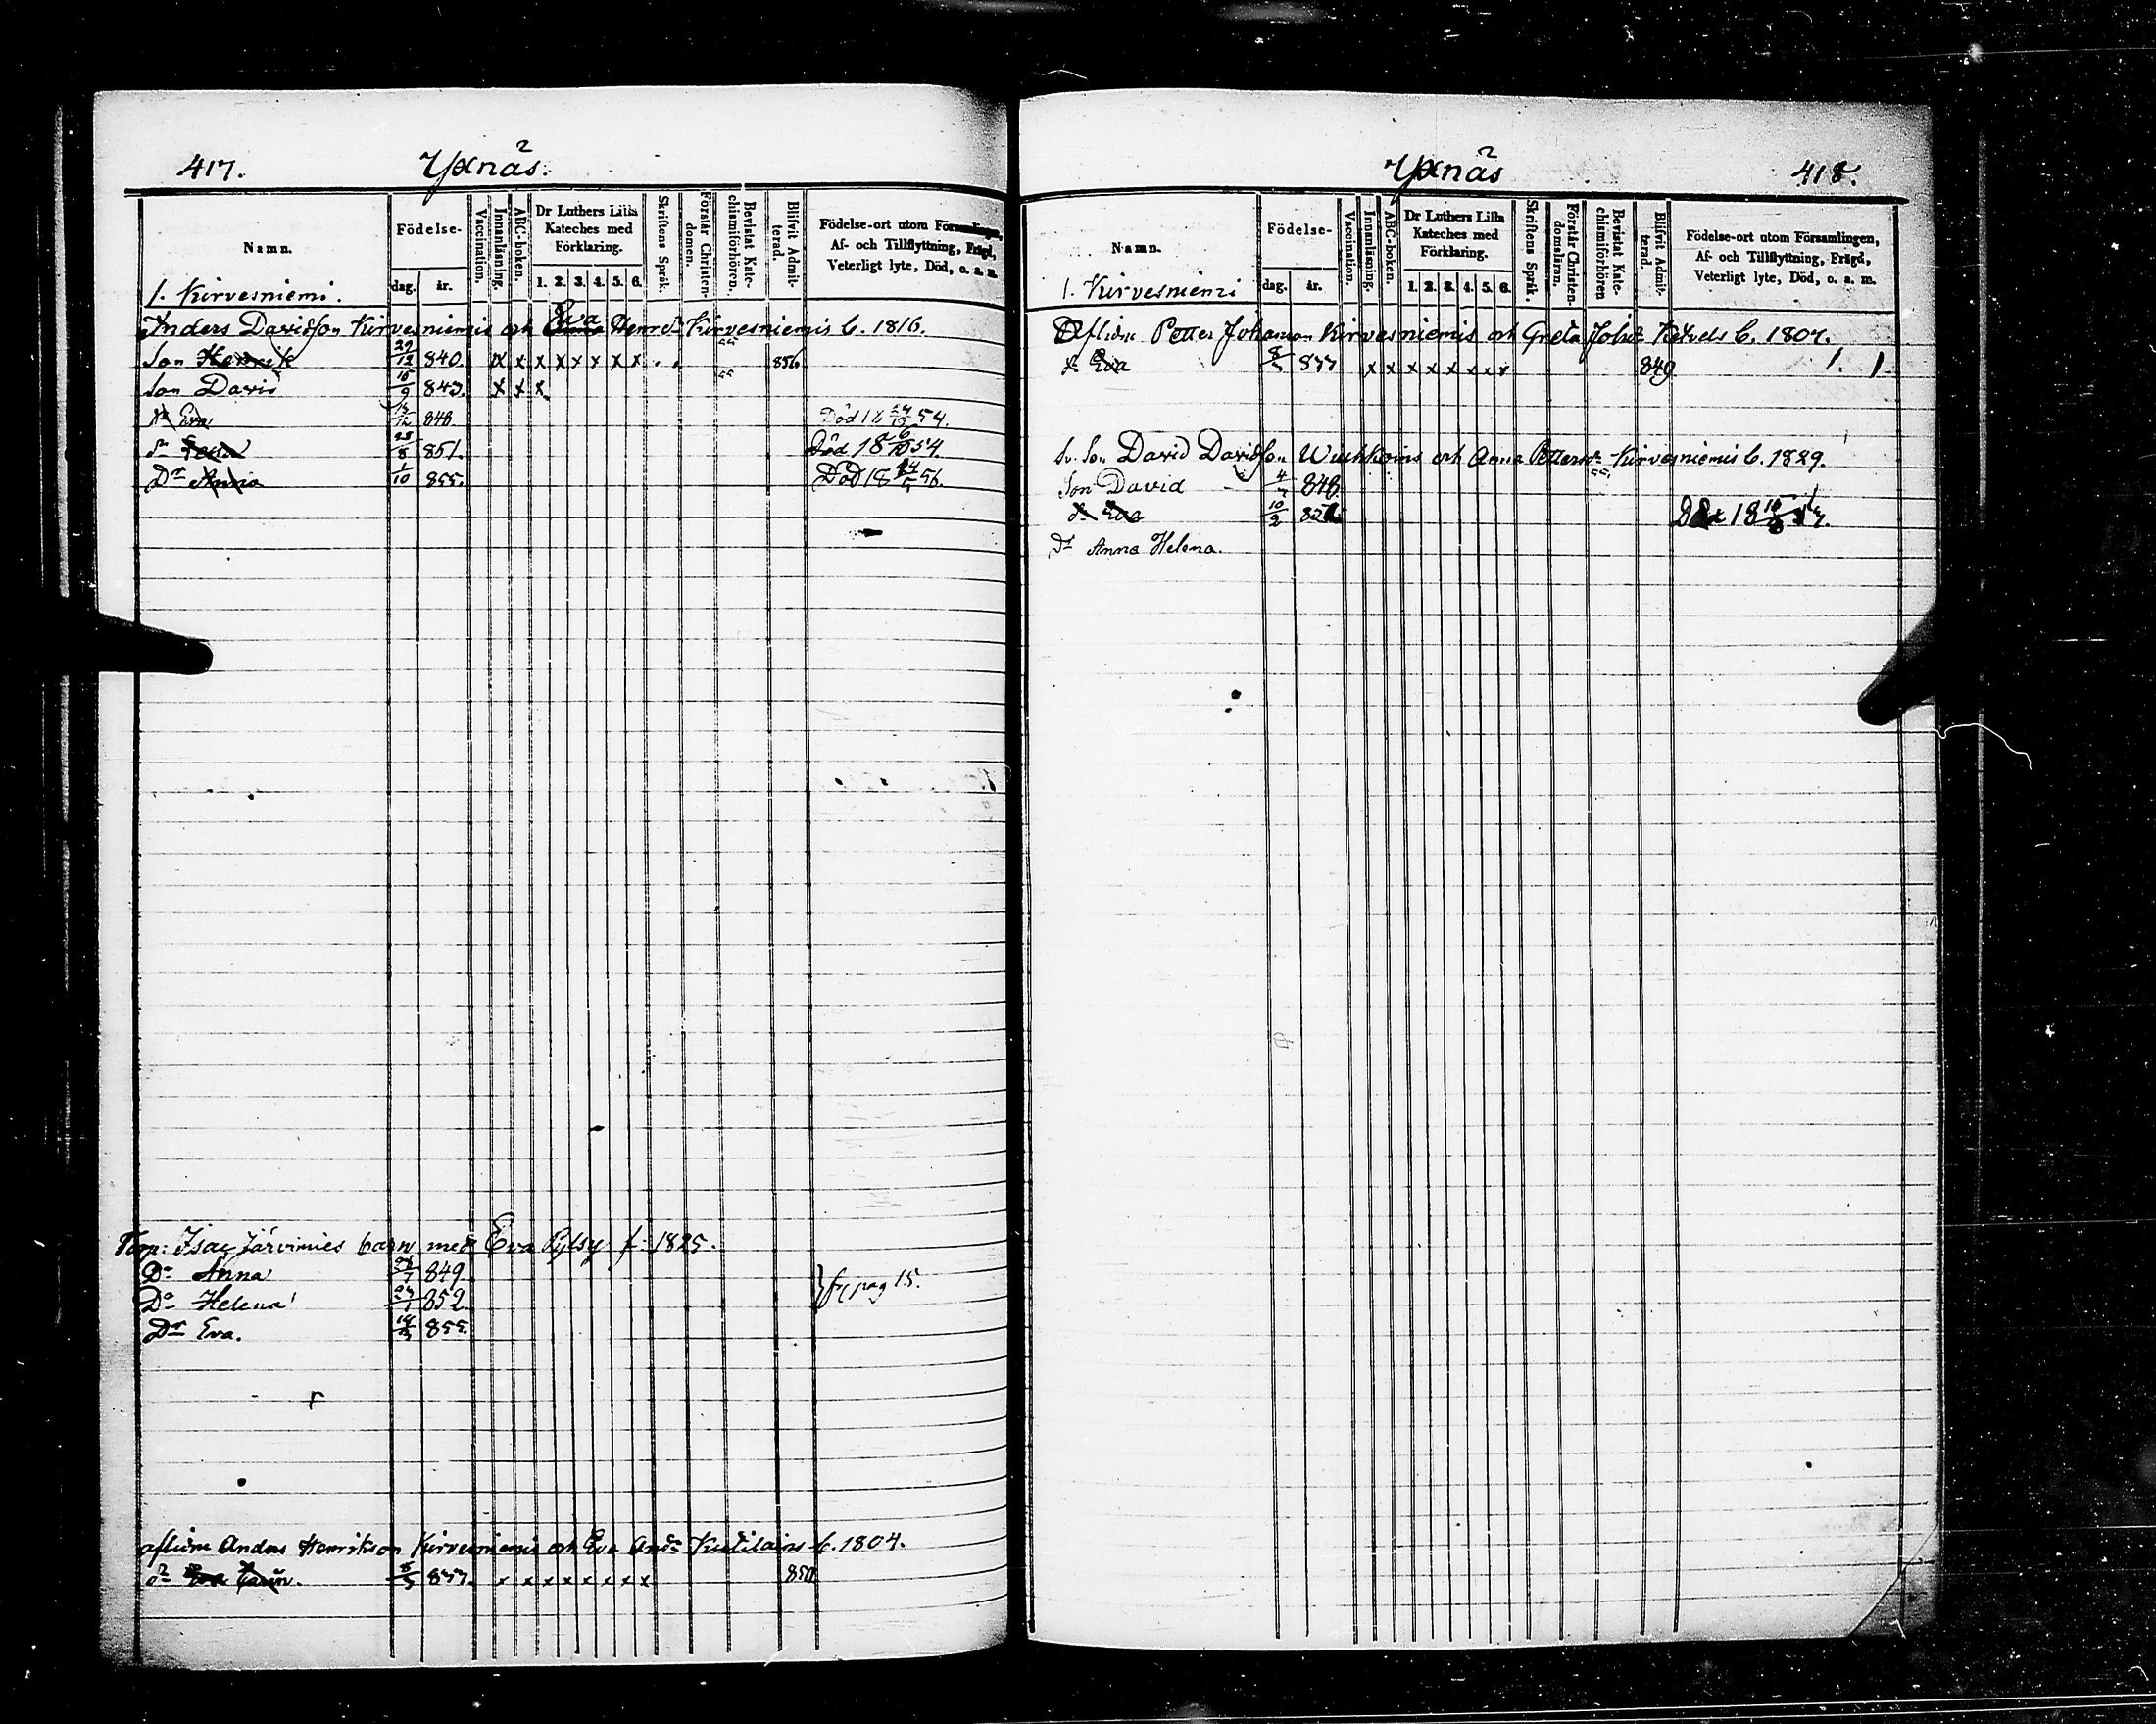 417. Yxnäs.
Namn. Födelse- dag. år. Vaccination. Innanläsning. ABC-boken. Dr Luthers Lilla Kateches med Förklaring. 1. 2. 3. 4. 5. 6. Skriftens Språk. Förstår Christen-domen. Bevistat Kate-chismiförhören. Blifvit Admit-terad. Födelse-ort utom Församlingen, Af- och Tillflyttning, Frägd, Veterligt lyte, Död, o. a. m.
1. Kirvesniemi.
Anders Davidson Kirvesniemis och Eva Henrsdr Kirvesniemis b. 1816.
Son Henrik 29/12 840. x x x x x x x x 856
Son David 15/9 843. x x x
Dr Eva 12/12 848 Död 18 24/10 54.
Dr 28/8 851. Död 18 6/10 54.
Dr Anna 1/10 855. Död 18 24/5 56.
Torp: Isac Järvinies barn med Eva Pylsy f. 1825.
Dr Anna 849
Dr Helena 852 } fr pag 15.
Dr Eva. 855.
aflidne Anders Henrikson Kirvesniemis och Eva Andr Kutilains b. 1804.
dr Eva Carin. 837. x x x x x x x x 850
Yxnäs 418.
Namn. Födelse- dag. år. Vaccination. Innanläsning. ABC-boken. Dr Luthers Lilla Kateches med Förklaring. 1. 2. 3. 4. 5. 6. Skriftens Språk. Förstår Christen-domsläran. Bevistat Kate-chismiförhören Blifvit Admit-terad. Födelse-ort utom Församlingen, Af- och Tillflyttning, Frägd, Veterligt lyte, Död, o. a. m.
1. Kirvesniemi
Aflidne Petter Johanson Kirvesniemis och Greta Johsdr b. 1807.
dr Eva 837 x x x x x x x x 849 1. 1
Sv. Son David Davidson Wuohkoins och Anna Pettersdr Kirvesniemis b. 1829.
Son David 4/7 848
dr Eva 10/2 852
Dr Anna Helena.